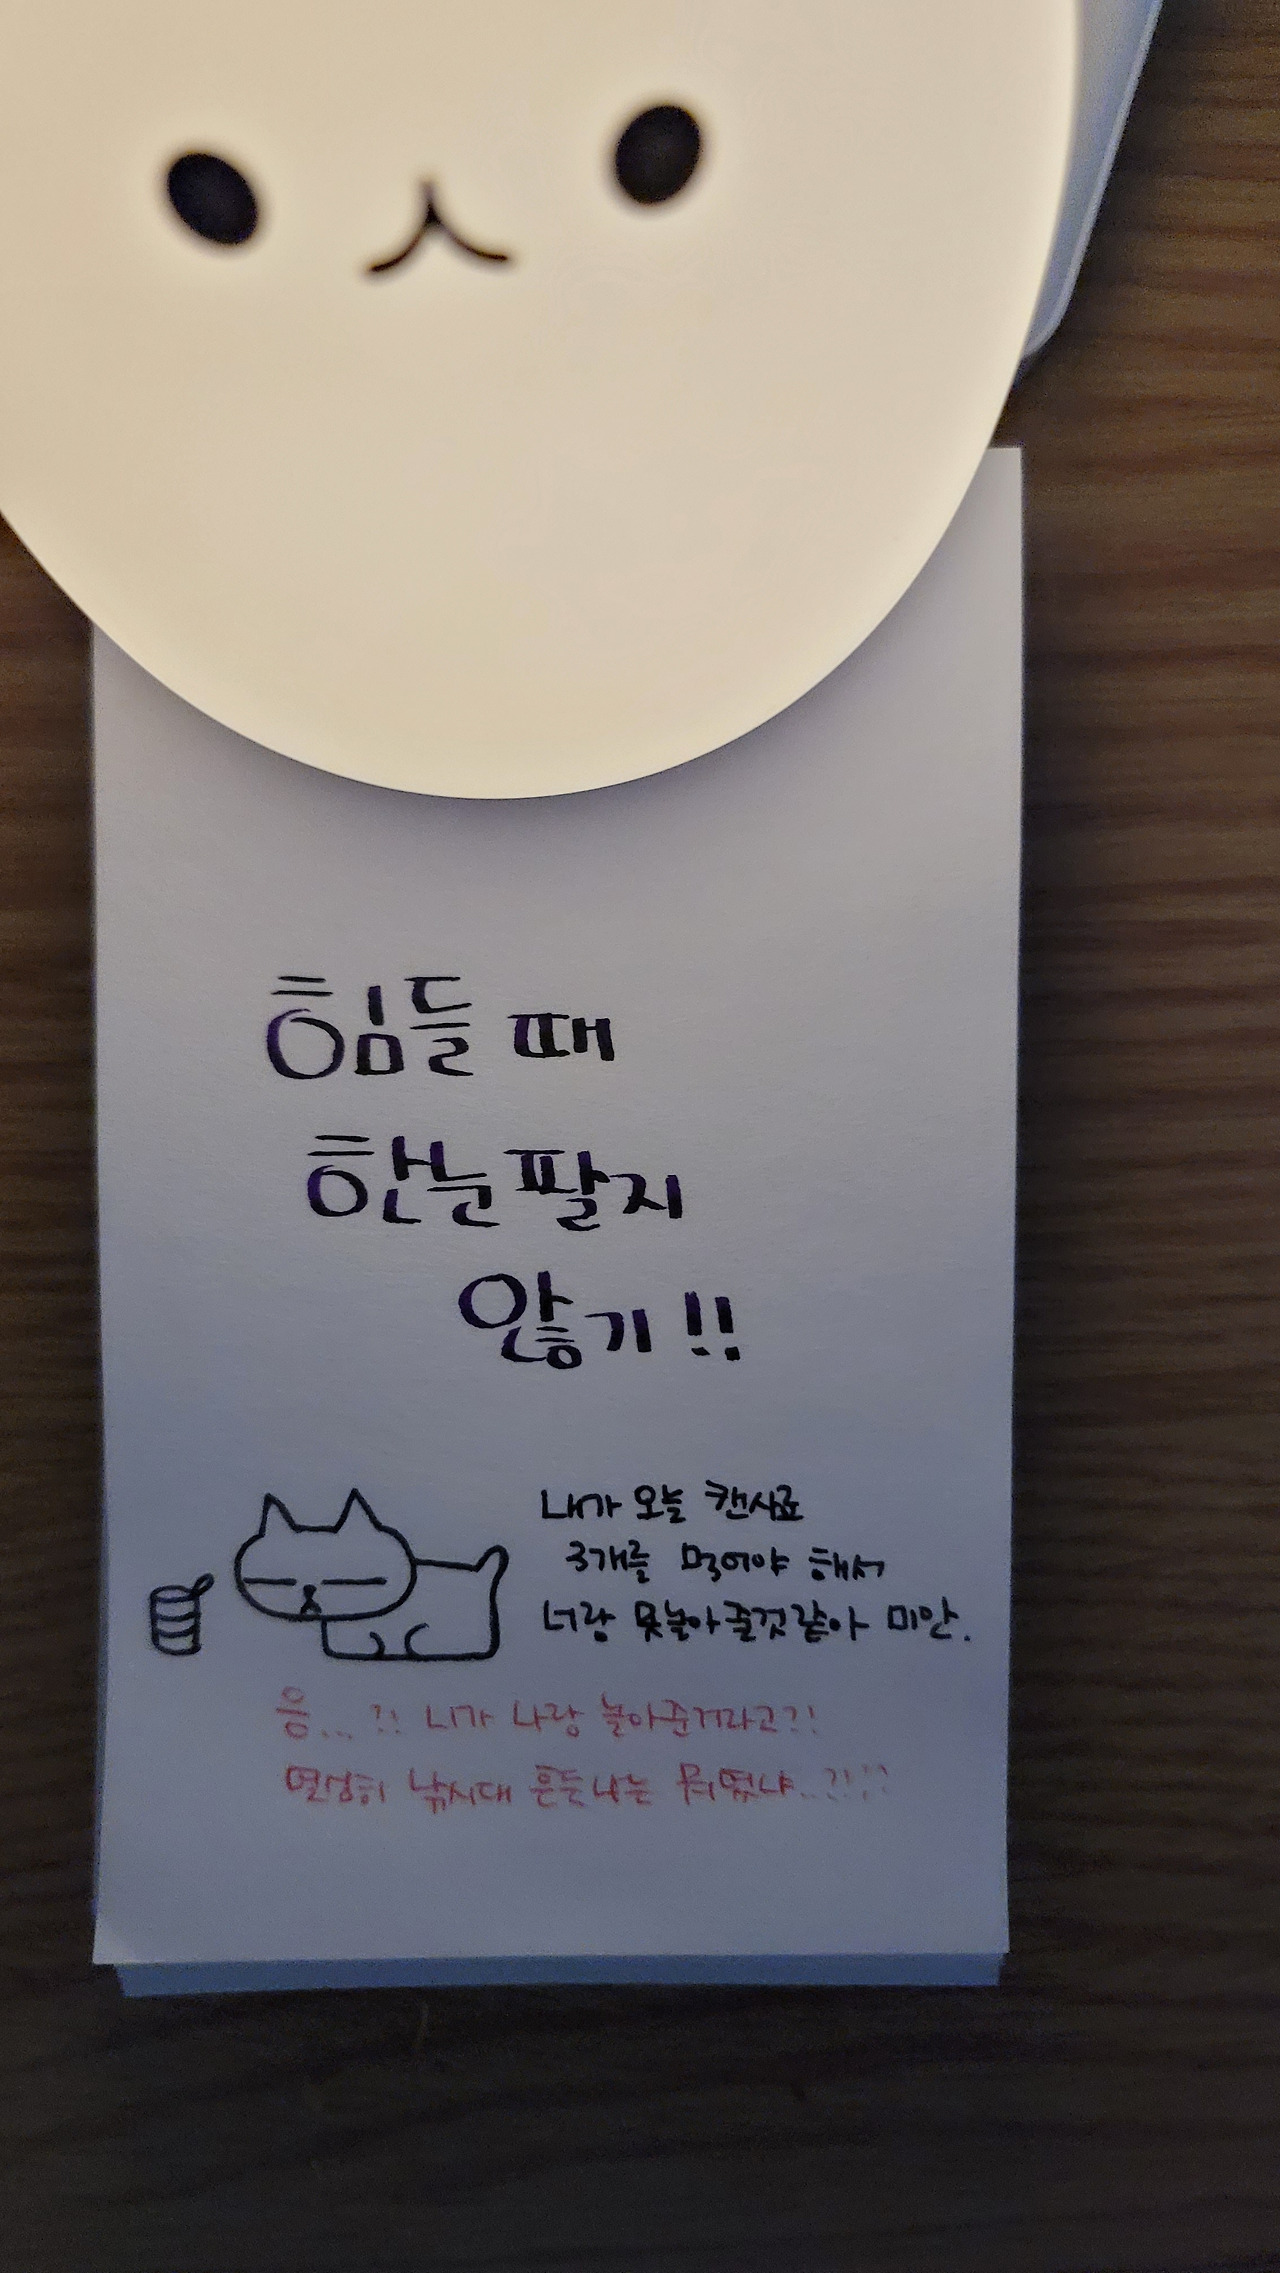 힘들 때
한눈팔지
않기!!
내가 오늘 캔사료
3개를 먹어야 해서
너랑 못놀아줄것같아 미안.
응...?! 니가 나랑 놀아준거라고?!
열심히 낚시대 흔든나는 뭐였냐..?!??